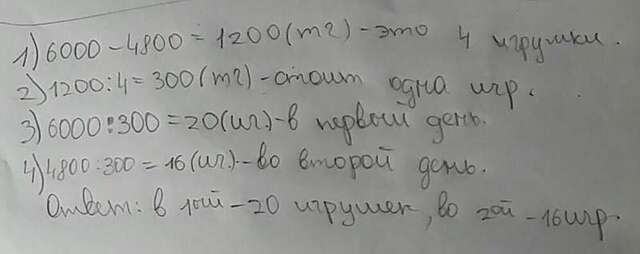 1) 6000 - 4800 = 1200 (тг) - это 4 игрушки.
2) 1200 : 4 = 300 (тг) - стоит одна игр.
3) 6000 : 300 = 20 (иг) - в первый день.
4) 4800 : 300 = 16 (иг) - во второй день.
Ответ: в 1ый - 20 игрушек, во 2ой - 16 игр.